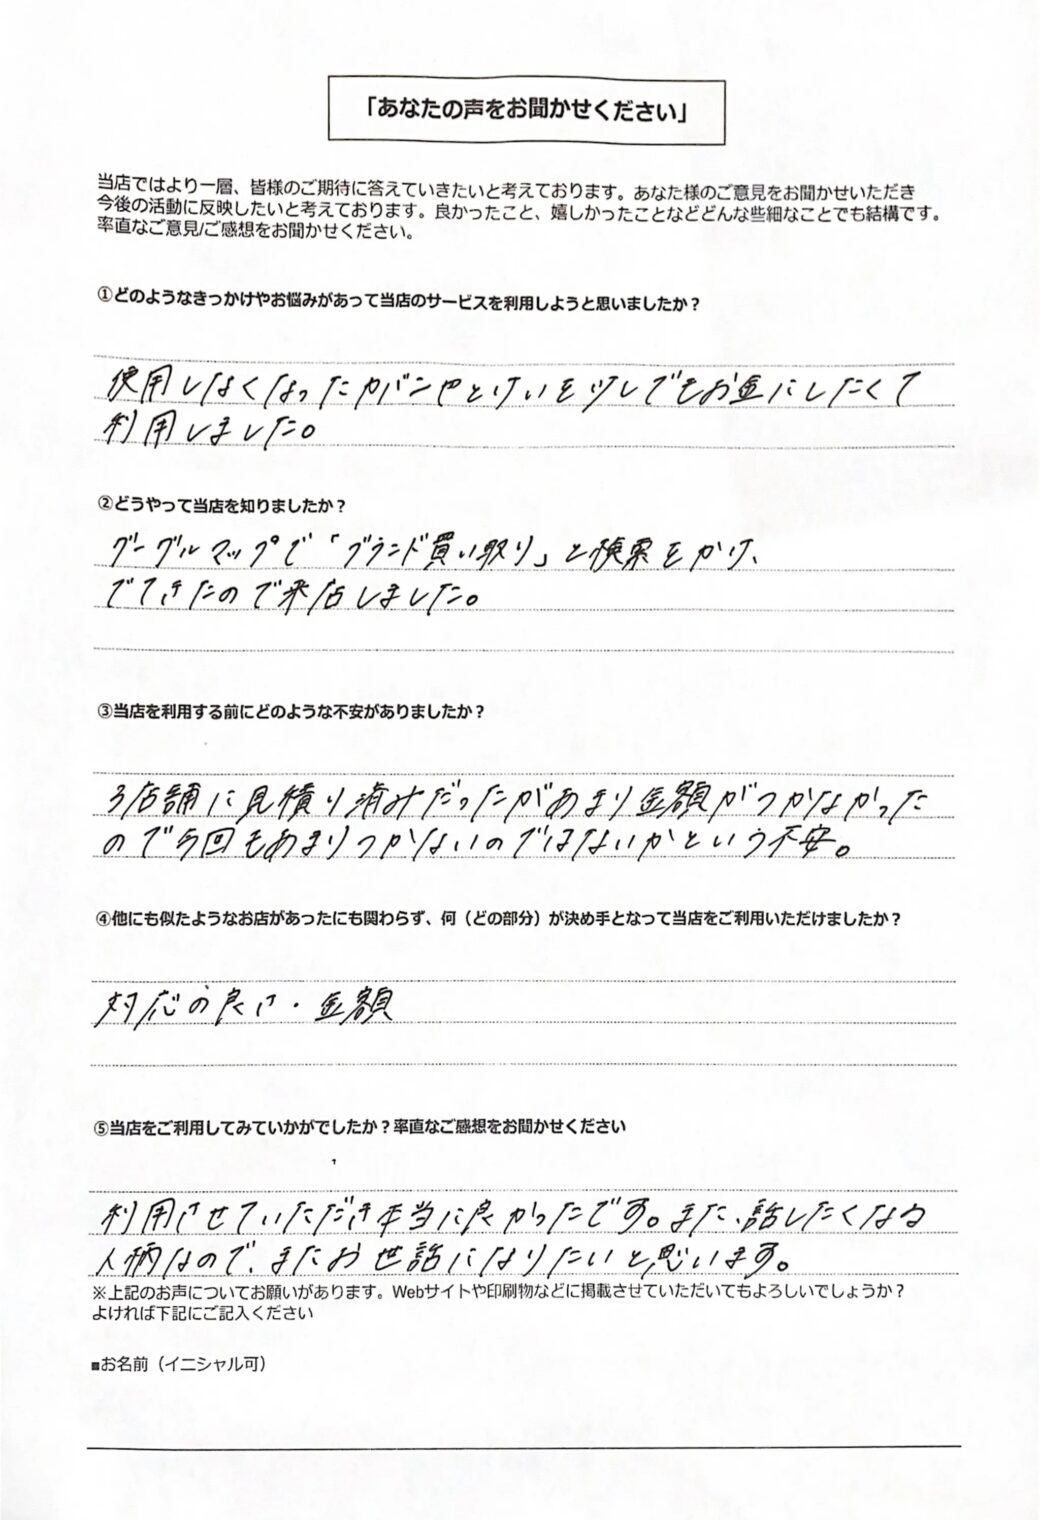 「あなたの声をお聞かせください」
当店ではより一層、皆様のご期待に答えていきたいと考えております。あなた様のご意見をお聞かせいただき
今後の活動に反映したいと考えております。良かったこと、嬉しかったことなどどんな些細なことでも結構です。
率直なご意見/ご感想をお聞かせください。
①どのようなきっかけやお悩みがあって当店のサービスを利用しようと思いましたか？
使用しなくなったカバンやとけいを少しでもお金にしたくて
利用しました。
②どうやって当店を知りましたか？
グーグルマップで「ブランド買い取り」と検索をかけ、
でてきたので来店しました。
③当店を利用する前にどのような不安がありましたか？
3店舗に見積り済みだったがあまり金額がつかなかった
ので今回もあまりつかないのではないかという不安。
④他にも似たようなお店があったにも関わらず、何（どの部分）が決め手となって当店をご利用いただけましたか？
対応の良さ・金額
⑤当店をご利用してみていかがでしたか？率直なご感想をお聞かせください
利用させていただき本当に良かったです。また、話したくなる
人柄なので、またお世話になりたいと思います。
※上記のお声についてお願いがあります。Webサイトや印刷物などに掲載させていただいてもよろしいでしょうか？
よければ下記にご記入ください
■お名前（イニシャル可）